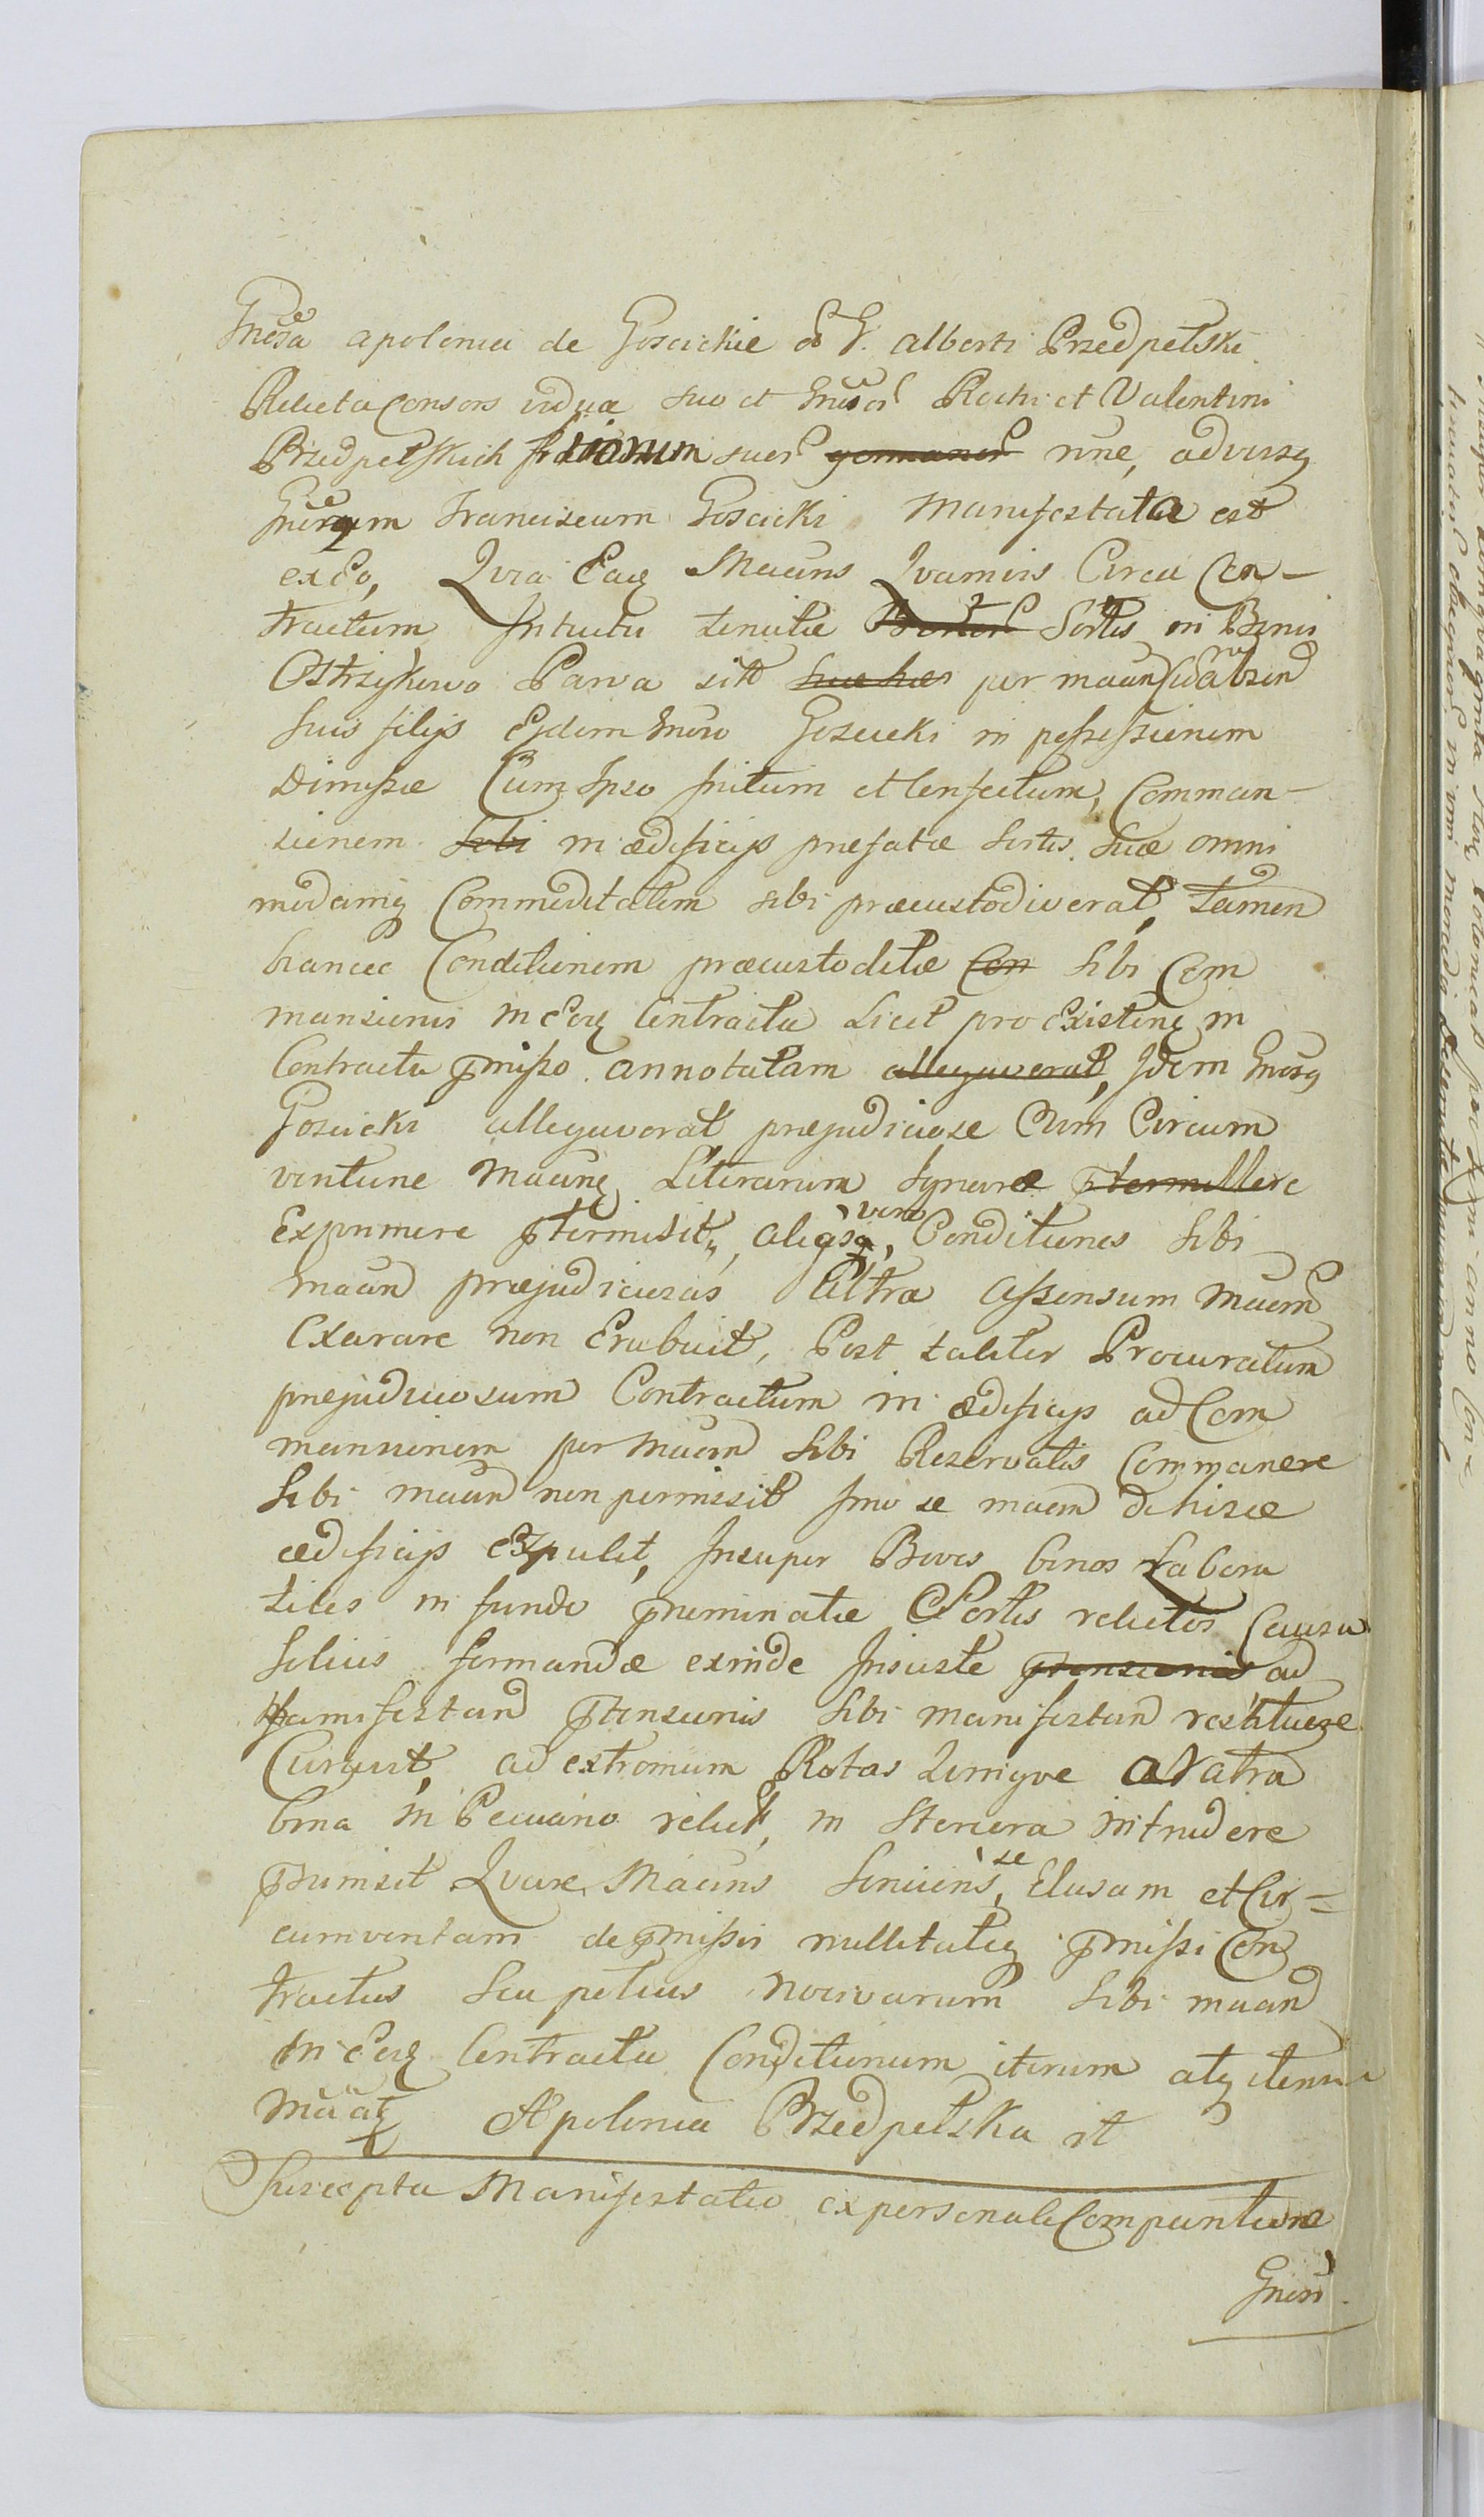 Gnosa Apolonia de Goscickie o G. Alberti Przedpełski
Relicta Consors vidua suo et Gnosor Rochi et Valentini
Przedpełskich filiorum suor germanor nne, adversq
Gnosum Franciscum Goscicki Manifestata est
ex Eo, Qvia Eaq Maans Qvamvis Circa Con-
tractum Intuitu tenutæ Bonor Sortis in Bonis
Ostrzykowo Parva sitt per maan
suis filijs Eidem Gnoso Goscicki in possessionem
Dimissæ Cum Ipso Initum et Confectum, Comman-
sionem sibi in ædificijs prefatæ Sortis suæ omni
modamq Commoditatem sibi præcustodiverat, tamen
hancce Conditionem præcustoditæ Con sibi Com
mansionis in Eoq Contractu Licet pro Existenq in
Contractu pmisso annotatam allegaverat, Idem Gnosq
Goscicki allegaverat prejudiciose Cum Circum
ventione Maanq Literarum Ignaræ ptermittere
Exprimere ptermisit, aliasq vero Conditiones sibi
maan præjudiciosas Ultra Assensum Maem
Exarare non Erubuit, Post taliter Procuratum
prejudiciosum Contractum in ædificijs ad Com
mansionem per Maem sibi Reservatis Commanere
sibi maan non permisit Imo se maem de hisce
ædificijs Expulit, Insuper Boves binos Labora
tiles in fundo prenominatæ Sortis relictos Causa
solius formandæ exinde Injuste ptensionis ad
Manifestand ptensionis sibi manifestan restituere
Curavit, ad extremum Rotas Qvinqve aratra
bina in Pecuario relict, in Stercora intrudere
pmisit Qvare Maans Sentiens se Elusam et Cir=
cumventam de pmissis nullitateq pmissi Con
tractus seu potius nocivarum sibi maan
in Eoq Contractu Conditionum iterum atq iterum
Maatq Apolonia Przedpełska rt
Suscepta Manifestatio ex personali Comparitione
Gnosi